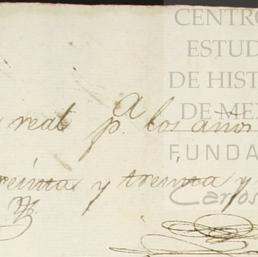 CENTRO
ESTUD
DE HIST
DE ME
FUNDA
Carlos
real pa. los años
treinta y treinta y